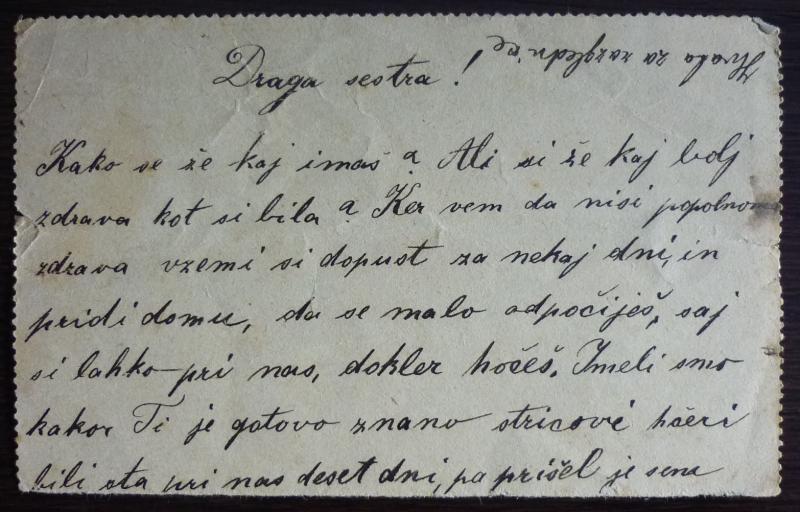 Hvala za razglednice
Draga sestra!
Kako se že kaj imaš? Ali si že kaj bolj
zdrava kot si bila? Ker vem da nisi popolnoma
zdrava vzemi si dopust za nekaj dni, in
pridi domu, da se malo odpočiješ, saj
si lahko pri nas, dokler hočeš. Imeli smo
kakor Ti je gotovo znano stricové hčeri
bili sta pri nas deset dni, pa prišel je